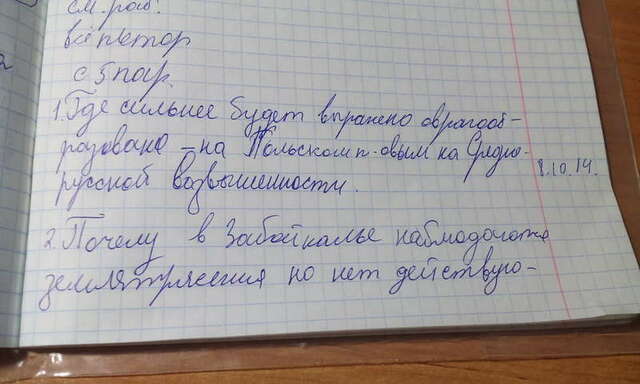 см. раб.
всё повтор
с 5 пар.
1. Где сильнее будет выражено оврагооб-
разование – на Польском п-овым на Средне- 8.10.14.
русской возвышенности.
2. Почему в Забайкалье наблюдаются
землятрясения но нет действую-